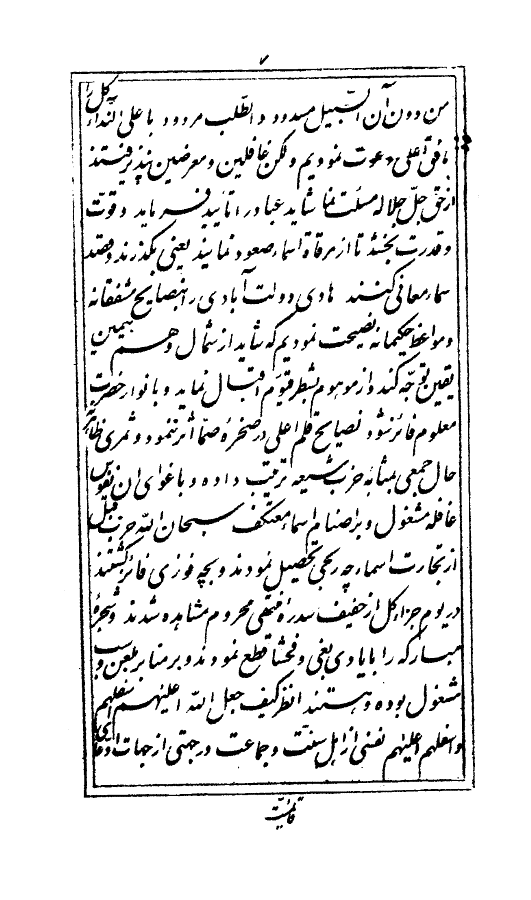 ۷
من دون آن السّبیل مسدود و الطّلب مردود باعلی النّدآء کلّ را به
بافق اعلی دعوت نمودیم ولکن غافلین و معرضین نپذیرفتند
از حقّ جلّ جلاله مسئلت نما شاید عباد را تأیید فرماید و قوّت
و قدرت بخشد تا از مرقاة اسماء صعود نمایند یعنی بگذرند و قصد
سماء معانی کنند هادی دولت آبادی را بنصایح مشفقانه
و مواعظ حکیمانه نصیحت نمودیم که شاید از شمال وهم بیمین
یقین توجّه کند و از موهوم بشطر قیّوم اقبال نماید و بانوار حضرت
معلوم فائز شود نصایح قلم اعلی در صخرهٔ صمّا اثر ننمود و ثمری ظاهر نه
حال جمعی بمثابه حزب شیعه ترتیب داده و باغوای ان نفوس
غافله مشغول و بر اصنام اسماء معتکف سبحان اللّه حزب قبل
از تجارت اسماء چه ربحی تحصیل نمودند و بچه فوزی فائز گشتند
در یوم جزاء کل از حفیف سدرهٔ منتهی محروم مشاهده شدند و شجرهٔ
مبارکه را بایادی بغی و فحشا قطع نمودند و بر منابر بلعن و سب
مشغول بوده و هستند انظر کیف جعل اللّه اعلیهم اسفلهم
و اسفلهم اعلیهم نفسی از اهل سنّت و جماعت در جهتی از جهات ادّعای
قائمیّت